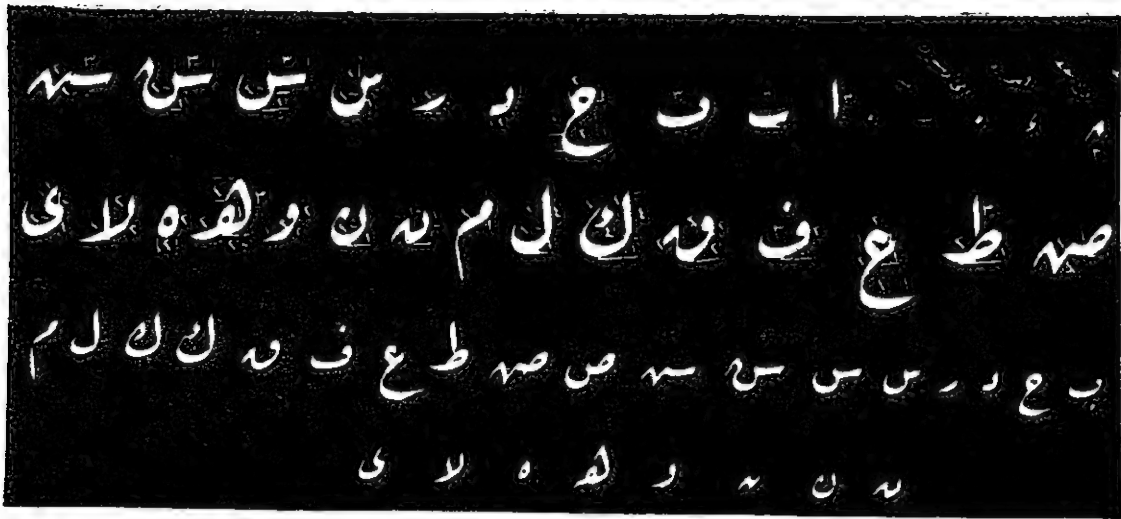 ا ب ب ح د ر س س س سه
صه ط ع ف ق ك ل م ن ن و ھ ه لا ى
ب ح د ر س س س سه ص صه ط ع ف ق ك ك ل م
ن ن ن و ھ ه لا ى